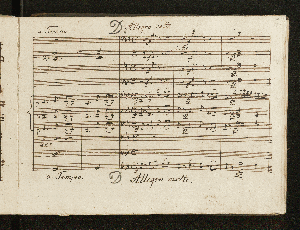 a Tempo. D Allegro molto
a Tempo. D Allegro molto.